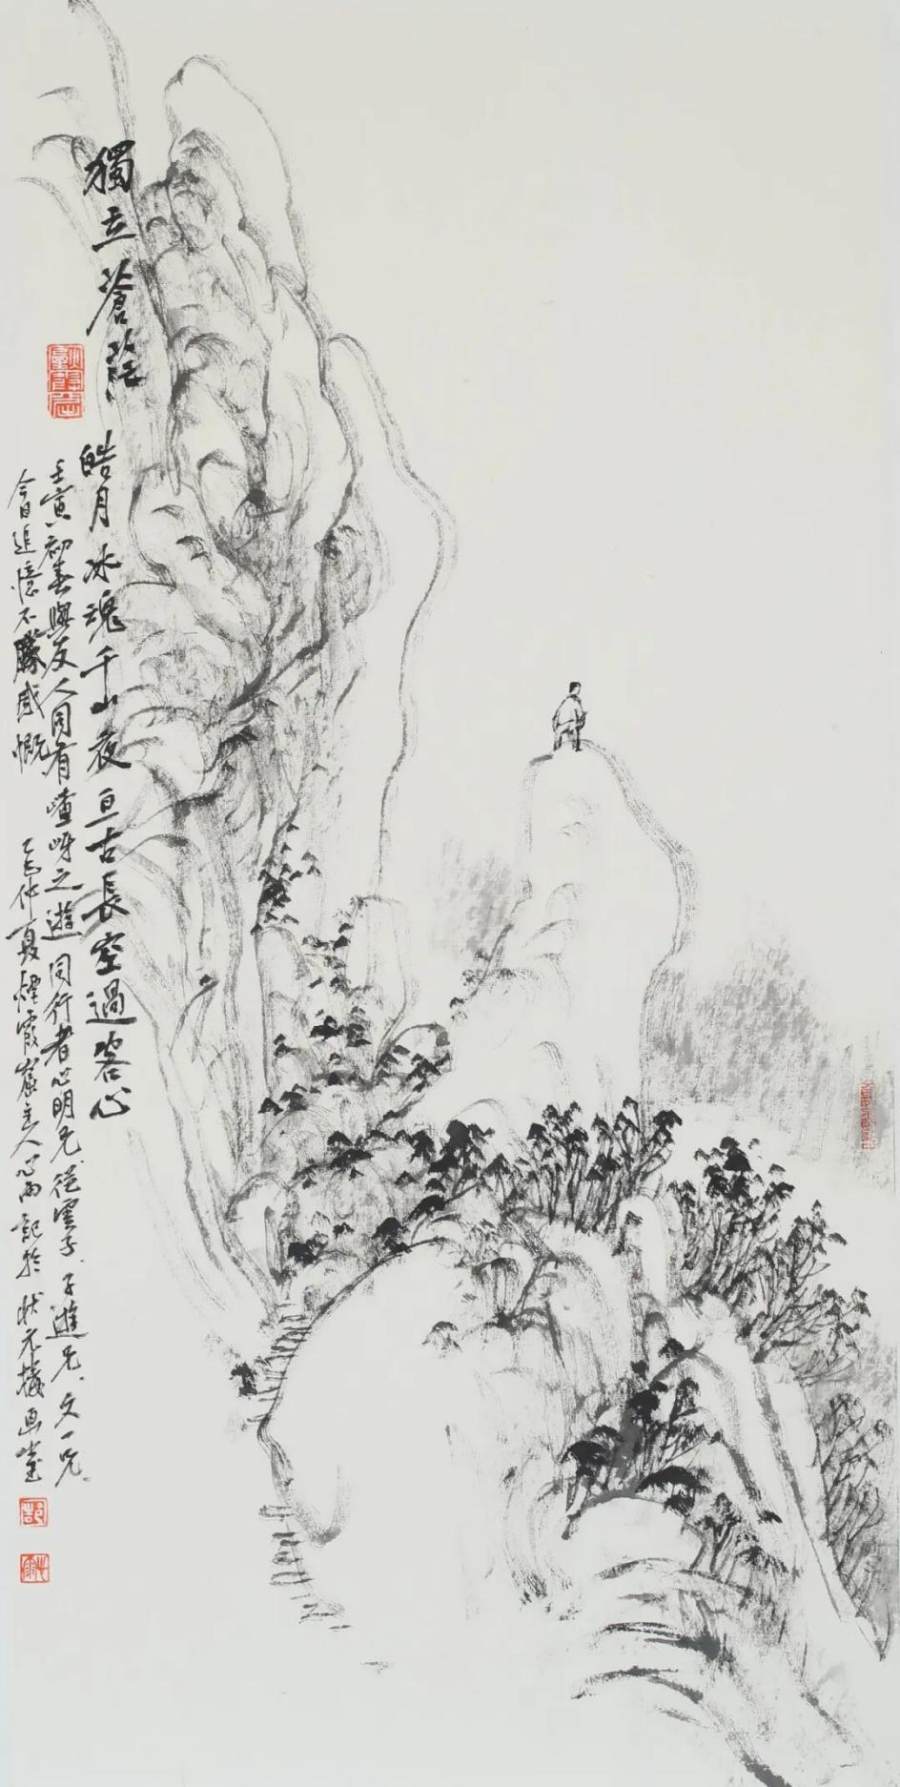 獨立蒼茫
皓月冰魂千山夜亘古長空過客心
壬寅初春與友人同有嵖岈之遊同行者心明兄從雲子子遊兄文一兄
今日追憶不勝感慨
乙巳仲夏煙霞窟主人心雨記於狀元樓画室